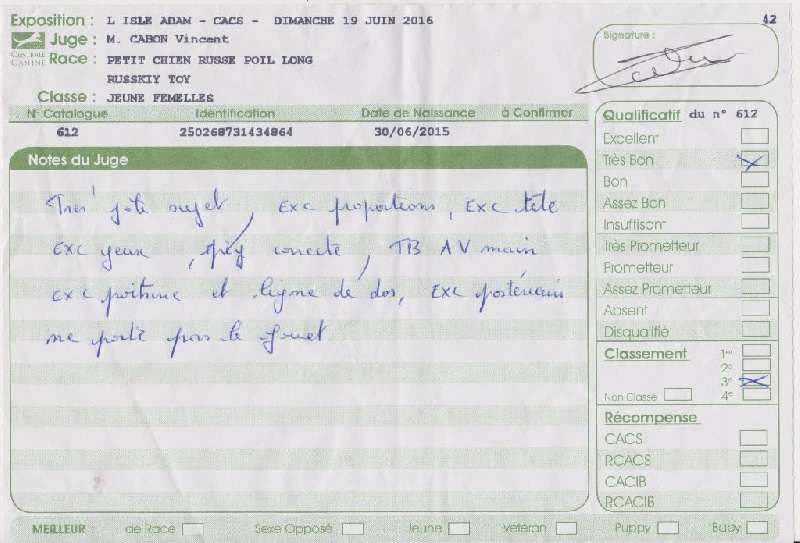 Exposition : L ISLE ADAM - CACS - DIMANCHE 19 JUIN 2016
42
Juge : M. CABON Vincent
Signature :
CENTRALE CANINE
Race : PETIT CHIEN RUSSE POIL LONG
RUSSKIY TOY
Classe : JEUNE FEMELLES
N° Catalogue Identification Date de Naissance à Confirmer
612 250268731434864 30/06/2015
Qualificatif du n° 612
Excellent
Très Bon
Bon
Assez Bon
Insuffisant
Très Prometteur
Prometteur
Assez Prometteur
Absent
Disqualifié
Notes du Juge
Très joli sujet, Exc proportions, Exc tête
Exc yeux, correcte, TB AV main
Exc poitrine et ligne de dos, Exc postérieurs
ne porte pas le fouet
Classement 1er
2e
3e
Non Classé 4e
Récompense
CACS
RCACS
CACIB
RCACIB
MEILLEUR : de Race Sexe Opposé Jeune Vétéran Puppy Baby